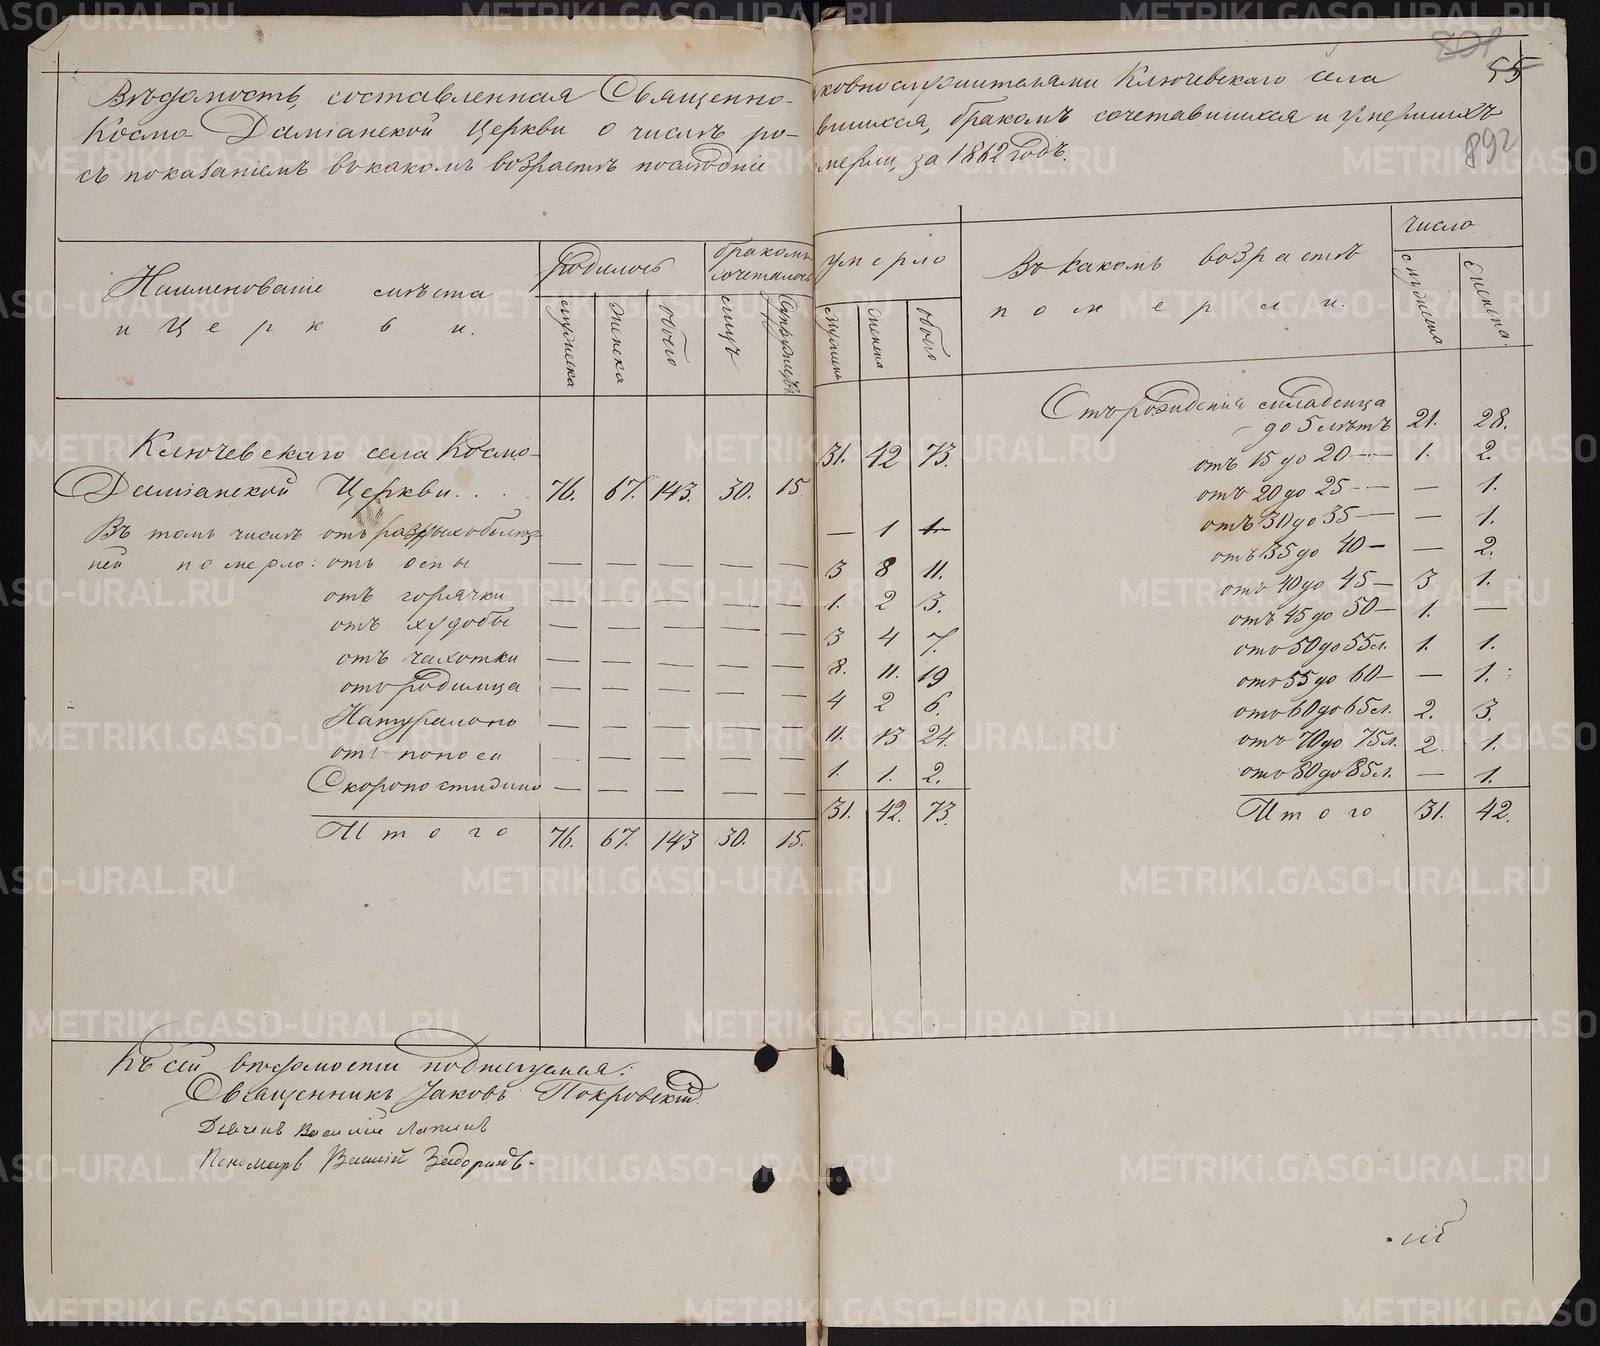 801
55
892
Вѣдомость, составленная Священно-
Космо-Даміанской Церкви о числѣ ро-
съ показаніемъ въ какомъ возрастѣ послѣдніе
церковнослужителями Ключевскаго села
дившихся, бракомъ сочетавшихся и умершихъ
мерли, за 1862 годъ.
Наименованіе мѣста
и Церкви.
родилось
бракомъ сочеталось
мужеска
женска
обоего
лицъ
Супружествъ
умерло
мужеска
женска
обоего
Въ какомъ возрастѣ
померли.
число
мужеска
женска.
Ключевскаго села Космо-
Даміанской Церкви.... 76. 67. 143. 30. 15.
31. 42 73.
Въ томъ числѣ отъ разныхъ болѣз-
— 1 1.
ней померло: отъ оспы — — — — —
3 8 11.
отъ горячки — — — — —
1. 2 3.
отъ худобы — — — — —
3 4 7.
отъ чахотки — — — — —
8. 11. 19
отъ родимца — — — — —
4 2 6.
Натурально — — — — —
11. 13 24.
отъ поноса — — — — —
1. 1. 2.
Скоропостижно — — — — —
31. 42. 73.
Итого 76. 67. 143 30. 15.
Отъ рожденія младенца
до 5 лѣтъ 21. 28.
отъ 15 до 20 — 1. 2.
отъ 20 до 25 — — 1.
отъ 30 до 35 — — 1.
отъ 35 до 40 — — 2.
отъ 40 до 45 — 3 1.
отъ 45 до 50 — 1. —
отъ 50 до 55 л. 1. 1.
отъ 55 до 60 — — 1.
отъ 60 до 65 л. 2. 3.
отъ 70 до 75 л. 2. 1.
отъ 80 до 85 л. — 1.
Итого 31. 42.
Къ сей вѣдомости подписуемся:
Священникъ Іаковъ Покровскій.
Дьячекъ Василій Лапинъ
Пономарь Василій Задоринъ.
METRIKI.GASO-URAL.RU